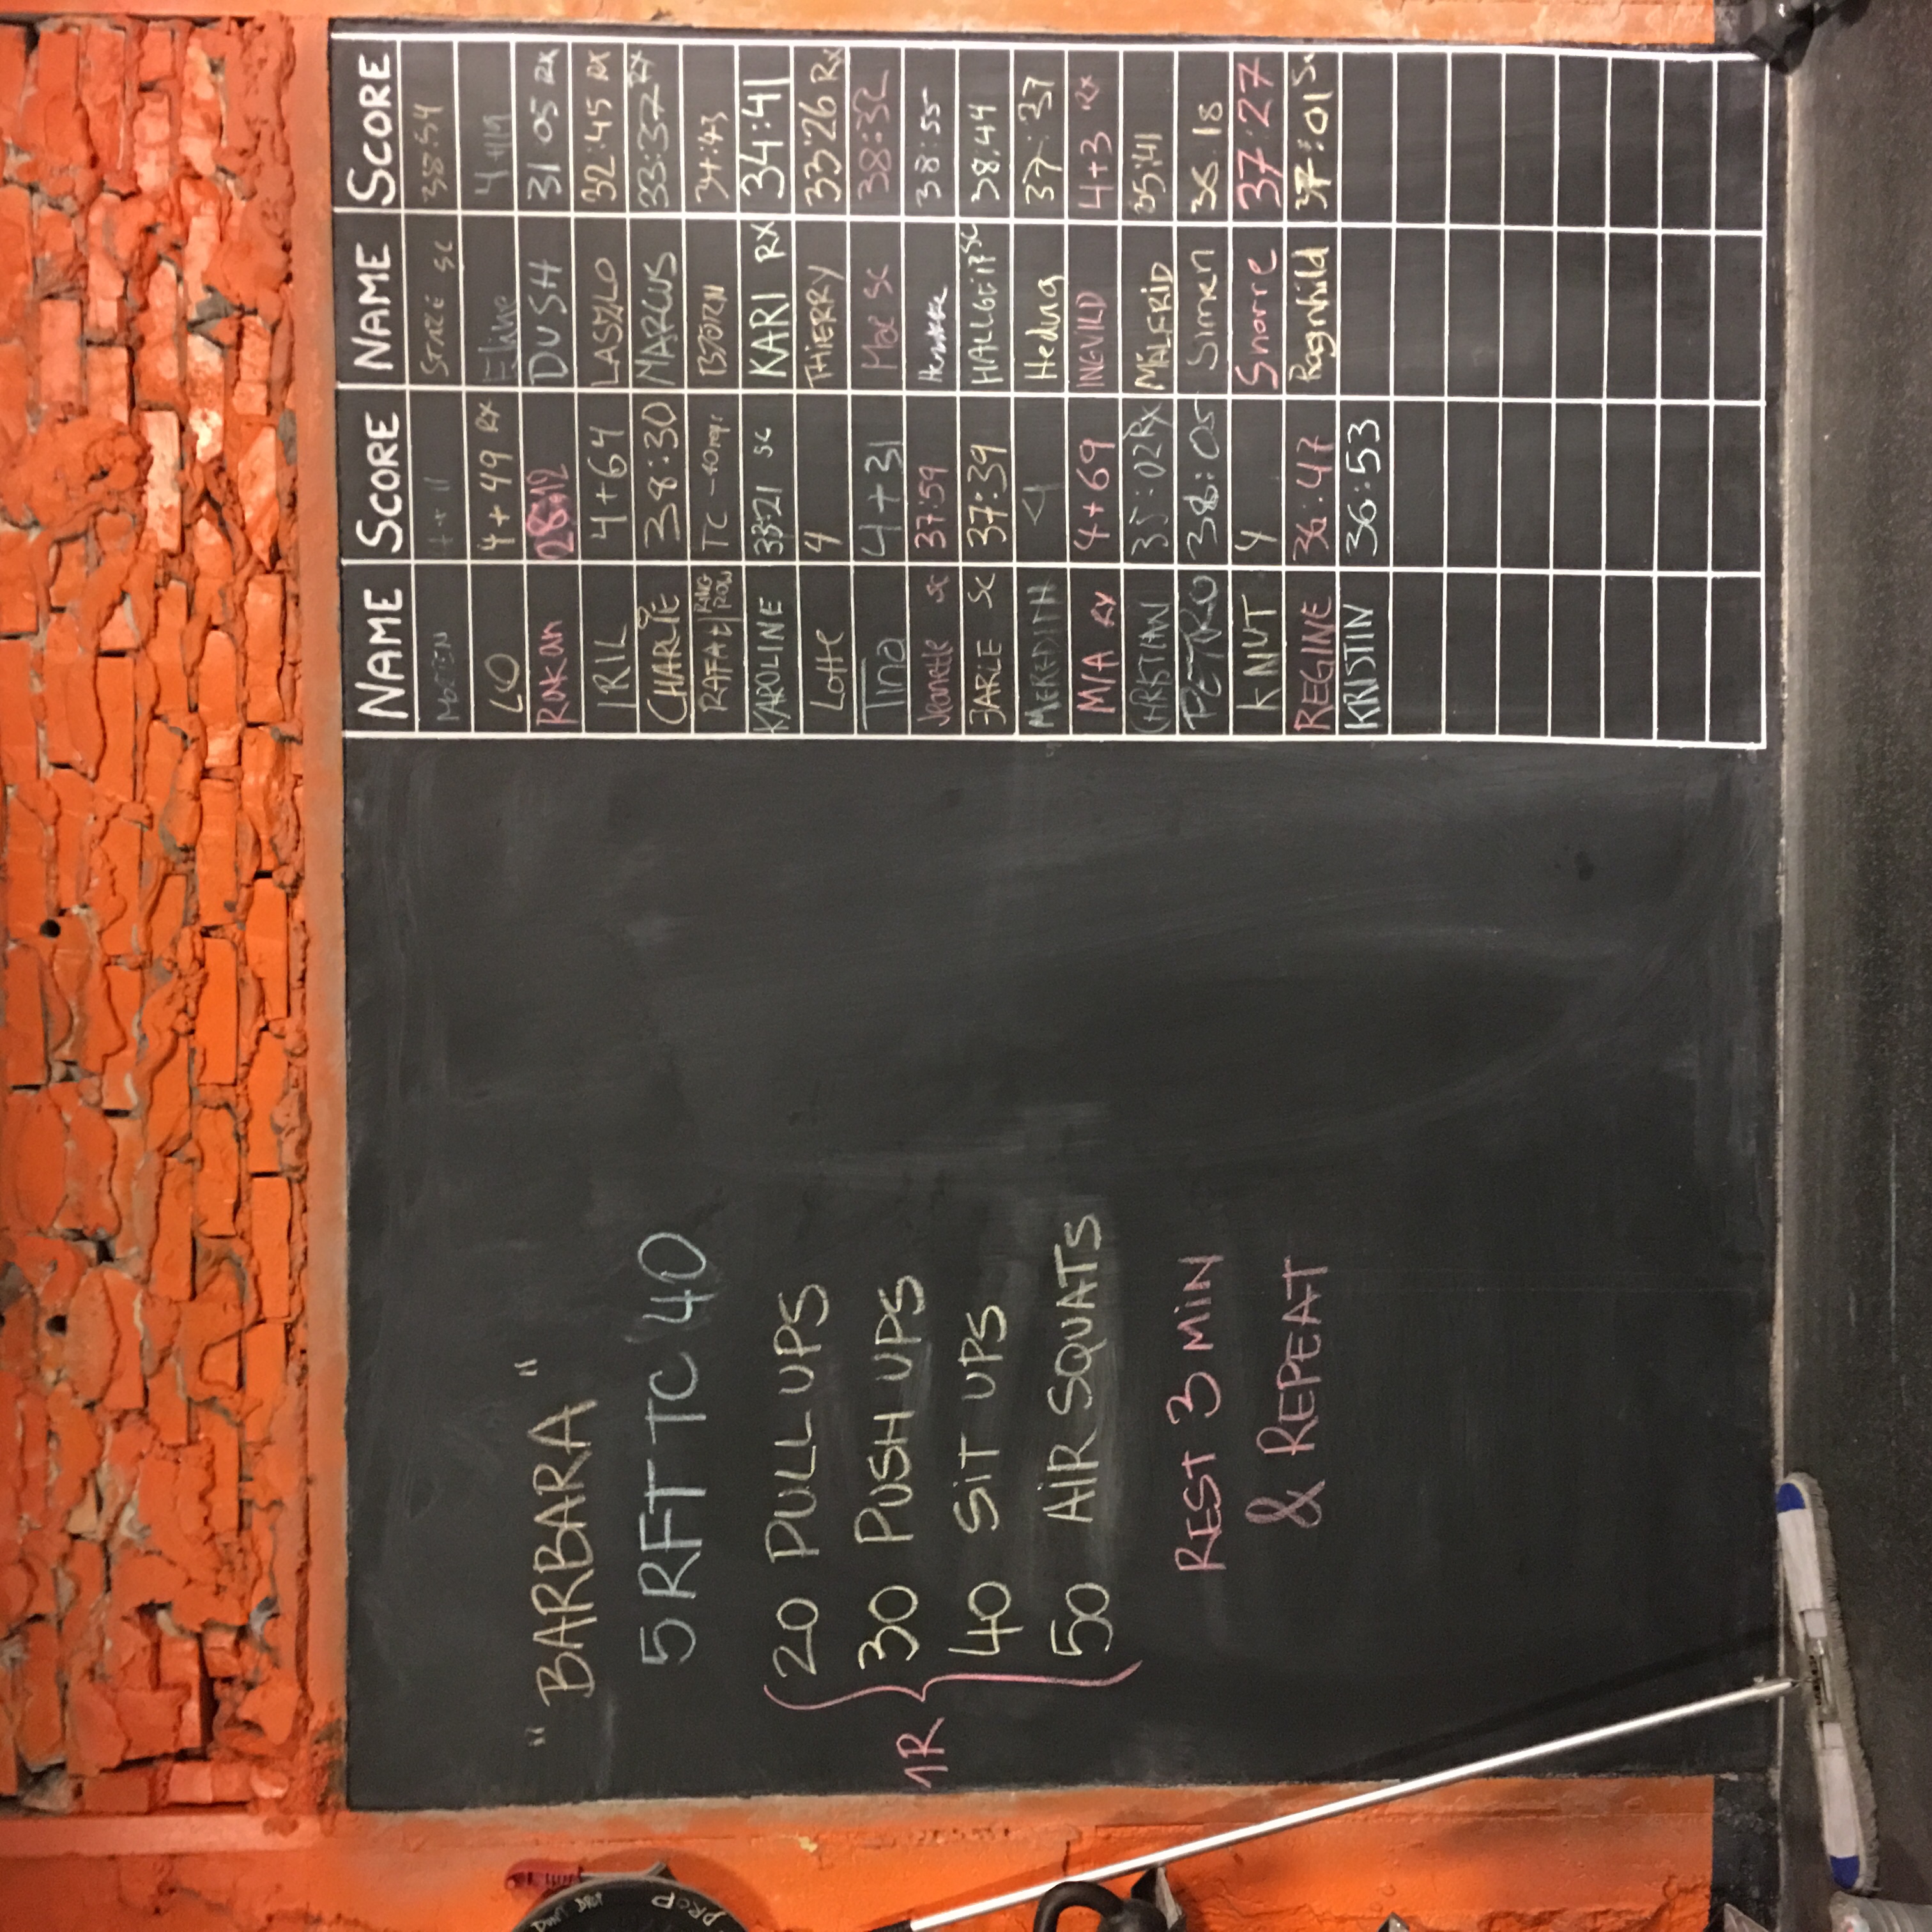 "BARBARA"
5 RFT TC 40
1R
20 PULL UPS
30 PUSH UPS
40 SIT UPS
50 AIR SQUATS
REST 3 MIN
& REPEAT
NAME SCORE NAME SCORE
MORTEN 4+11 STÅLE SC 38:54
LO 4+49 RX Eline 4+119
RAKAN 28:12 DUSH 31 05 RX
IRIL 4+64 LASZLO 32:45 RX
CHARLIE 38:30 MARCUS 33:37 RX
RAFAEL RING ROW TC -40reps BJØRN 34:43
KAROLINE 33:21 SC KARI RX 34:41
Lotte 4 THIERRY 33:26 Rx
Tina 4+31 Mae SC 38:32
Jeanette SC 37:59 38:55
JARLE SC 37:39 HALLGEIR SC 38:44
MEREDITH <4 Hedvig 37:37
MIA RX 4+69 INGVILD 4+3 RX
CHRISTIAN 35:02 RX MÅLFRID 35:41
PETRO 38:05 Simen 36.18
KNUT 4 Snorre 37:27
REGINE 36:47 Ragnhild 37:01 Sc
KRISTIN 36:53
DON'T DROP
DROP